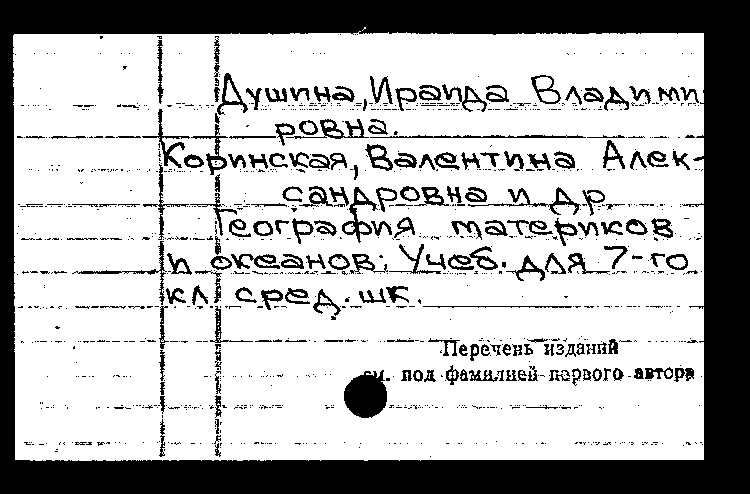 Душина, Ираида Владими
ровна.
Коринская, Валентина Алек-
сандровна и др.
География материков
и океанов: Учеб. для 7-го
кл. сред. шк.
Перечень изданий
см. под фамилией первого автора